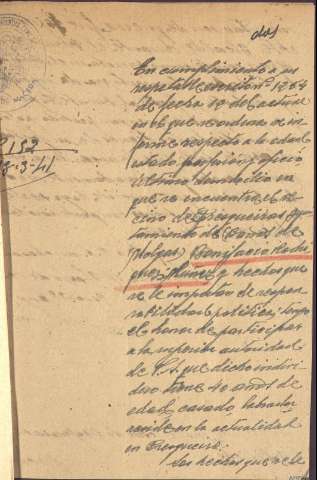 dos
En cumplimiento a su
respetable escrito nº 1254
de fecha 10 del actual
en el que se ordena se in-
forme respecto a la edad,
estado, profesion, oficio
ultimo domicilio en
que se encuentre el ve-
cino de Bresqueiros Ayun-
tamiento de
Bonifacio Rodri
guez y hechos que
se le imputan de respon-
sabilidades politicas, tengo
el honor de participar
a la superior autoridad
de V.S. que dicho indivi-
duo tiene 40 años de
edad, casado, labrador
reside en la actualidad
en
Los hechos que se le
3-41